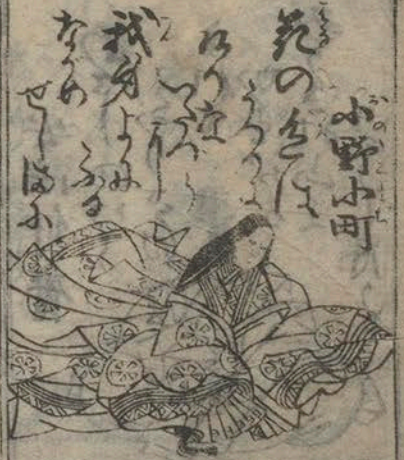 小野小町
花の色は
うつりに
けりな
いたづらに
我身よに
ふる
ながめ
せしまに